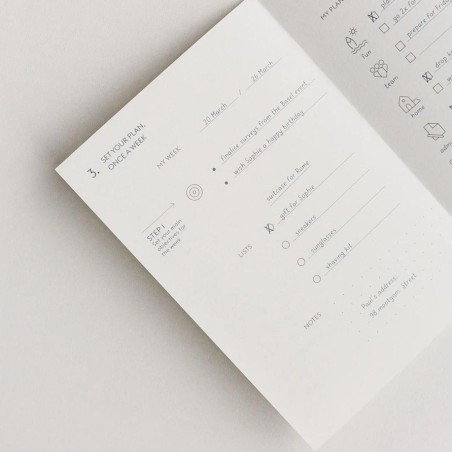 3. SET YOUR PLAN,
ONCE A WEEK
MY WEEK
20 March / 26 March
Finalise surveys from the Basel event
wish Sophie a happy birthday
STEP 1
Set your main
objectives for
the week
LISTS
suitcase for Rome
gift for Sophie
sneakers
sunglasses
shaving kit
NOTES
Paul's address
48 montgom. Street
MY PLAN
fun
go 2x for
prepare for Friday
team
home
drop